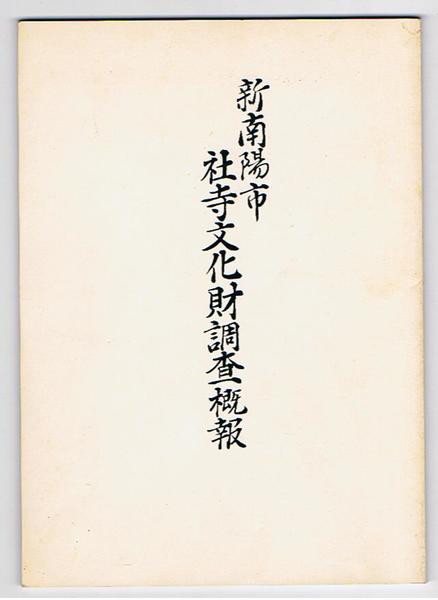 新南陽市
社寺文化財調査概報